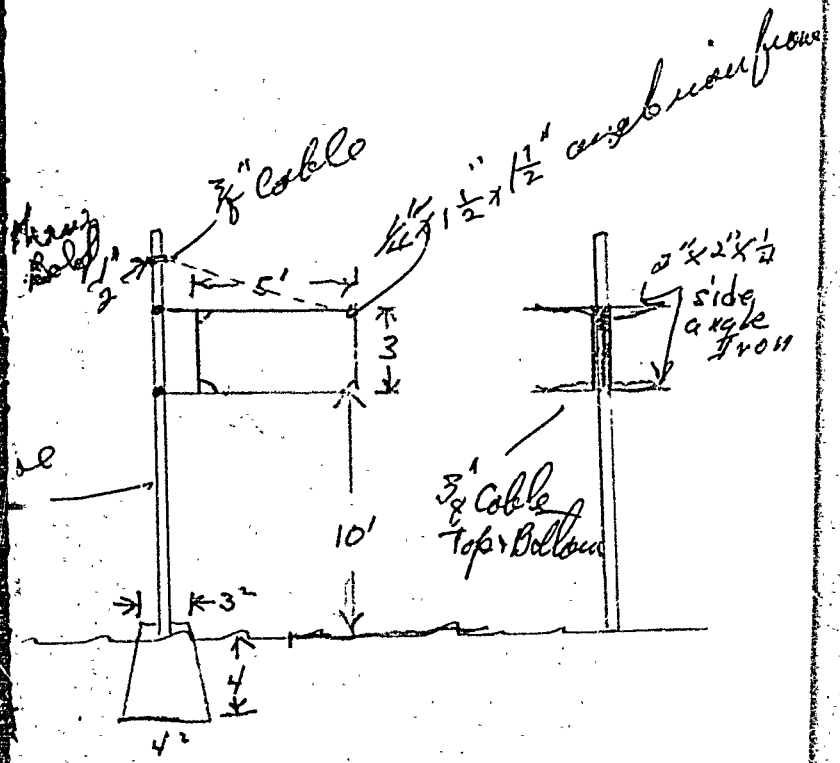 3/8" Cable
1/4" x 1 1/2" x 1 1/2" angle iron frame
1/2"
5'
3
2" x 2" x 1/4
side
angle
Iron
3/8" Cable
Top & Bottom
10'
3²
4
4²